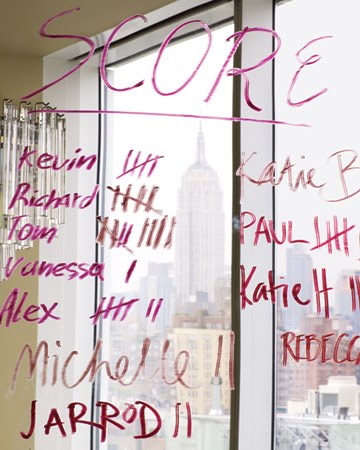 SCORE
Kevin
Richard
Tom
Vanessa
Alex
Michelle
JARROD
Katie B
PAUL
Katie H
REBECC